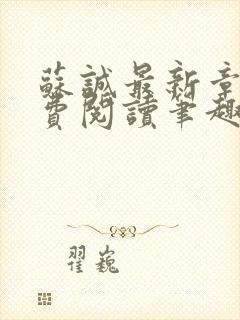 蘇誠最新章
費閱讀筆趣
翟巍